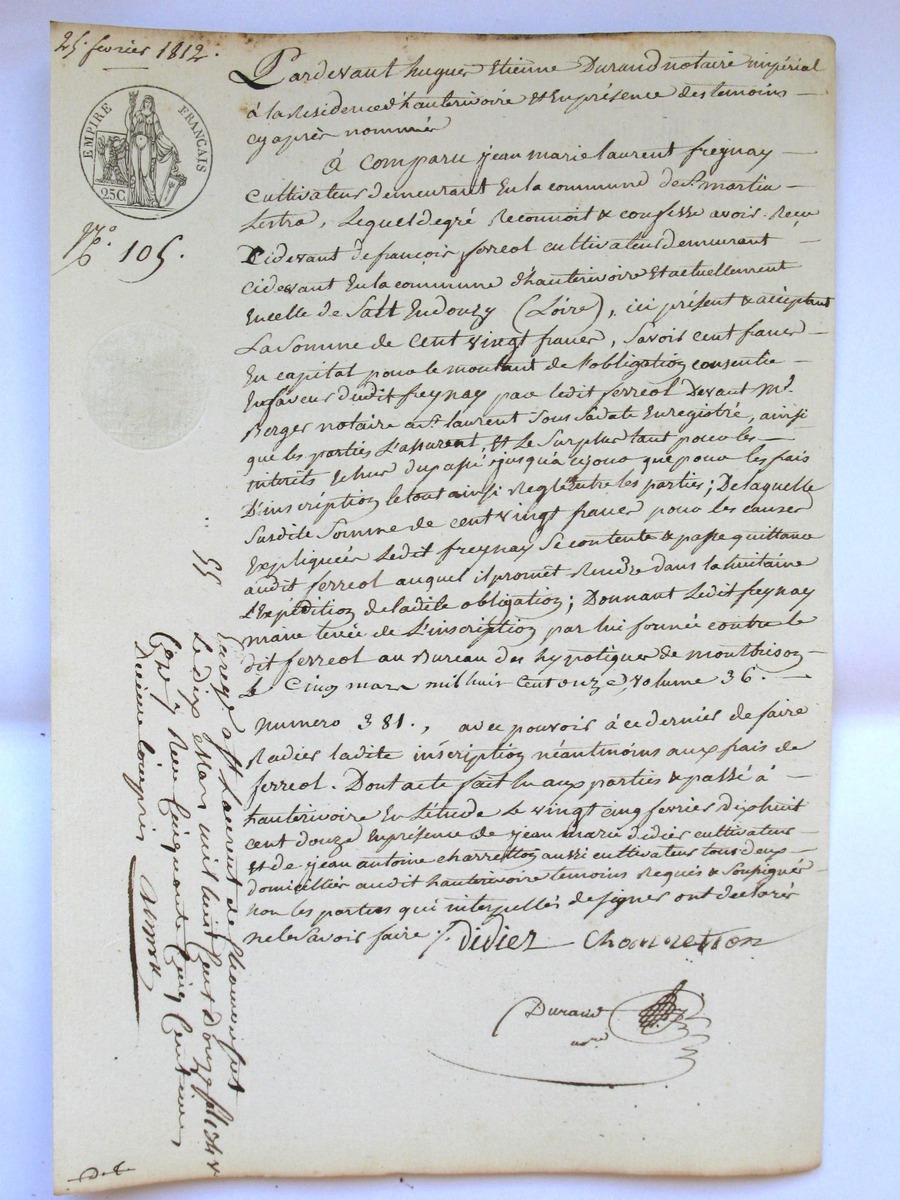 25. fevrier 1812.
EMPIRE FRANÇAIS
25C.
N.º 105.
Pardevant hugues Etienne Durand notaire impérial
à la Residence d'hauterivoire & En présence des temoins
cy après nommés
A comparu jean marie laurent freynay
cultivateur demeurant En la commune de St. martin
Lestra, Lequel de gré Reconnoit & confesse avoir Recu
Cidevant de françois ferreol cultivateur demeurant
cidevant En la commune d'hauterivoire Et actuellement
En celle de Salt En donzy (Loire), ici présent & acceptant
La Somme de Cent vingt francs, Savoir cent francs
En capital pour le montant de l'obligation consentie
En faveur dudit freynay par ledit ferreol Devant Me.
Berger notaire a St. laurent Sous Sa date Enregistré, ainsi
que les parties L'assurent, Et Le Surplus tant pour les
interets Echus du passé jusqu'à ce jour que pour les frais
D'inscription le tout ainsi Reglé Entre les parties; De laquelle
Susdite Somme de cent vingt francs pour les causes
Expliquées Ledit freynay Se contente & passe quittance
audit ferreol auquel il promet Rendre dans la huitaine
L'Expédition de ladite obligation; Donnant Ledit freynay
main levée de L'inscription par lui formée contre le
dit ferreol au Bureau des hypotiques de montbrison
Le Cinq mars mil huit Cent onze, volume 36.
Numero 381., avec pouvoir à ce dernier de faire
Radier ladite inscription néantmoins aux frais de
ferreol. Dont acte fait lu aux parties & passé à
hauterivoire En L'Etude Le vingt cinq février dixhuit
cent douze En présence de jean marie didier cultivateur
Et de jean antoine charretton aussi cultivateur tous deux
domiciliés audit hauterivoire temoins Requis & Soussignés
non les parties qui interpellés de signer ont déclarés
ne le Savoir faire /.
Didier Charretton
Durand
nore
55
Enregé a St Laurent de Chamousset
Le dix Mars mil huit Cent Douze
Reçu Cinquante Cinq Centimes
Dixieme Compris